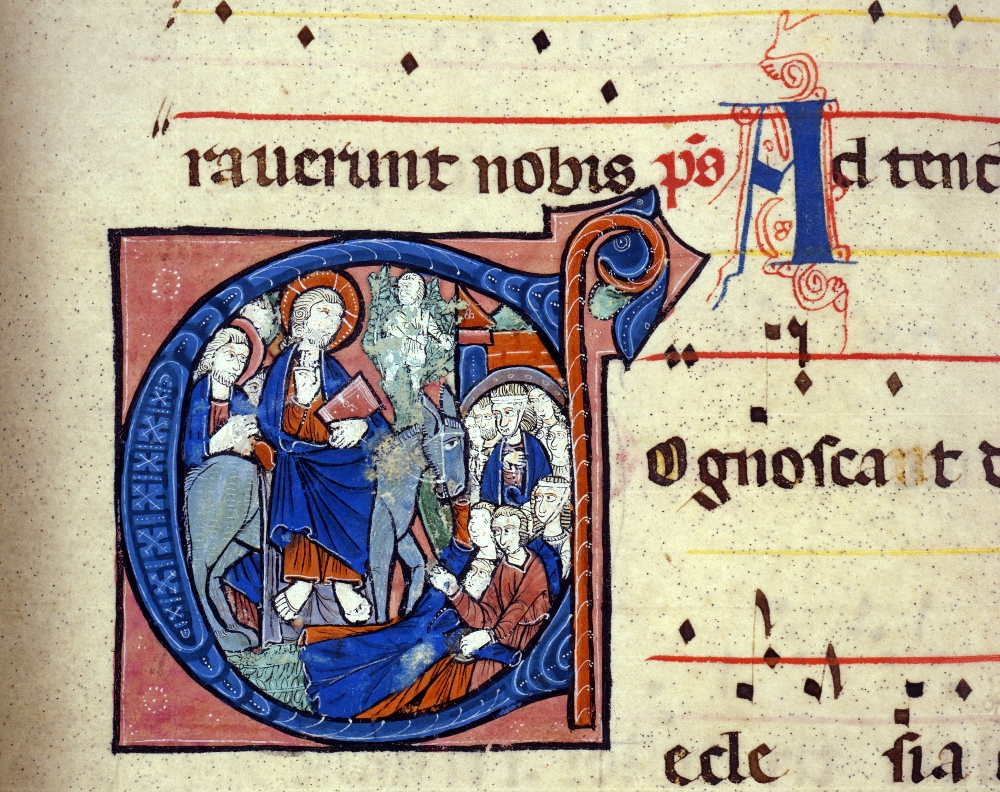 rauerunt nobis p̄s Ad tend
Cognoscant d
ecle sia